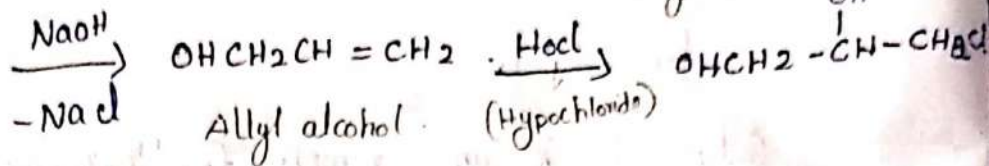 NaOH → OHCH2CH = CH2 . Hocl → OHCH2 - CH - CH2Cl
- Nacl Allyl alcohol. (Hypochloride)